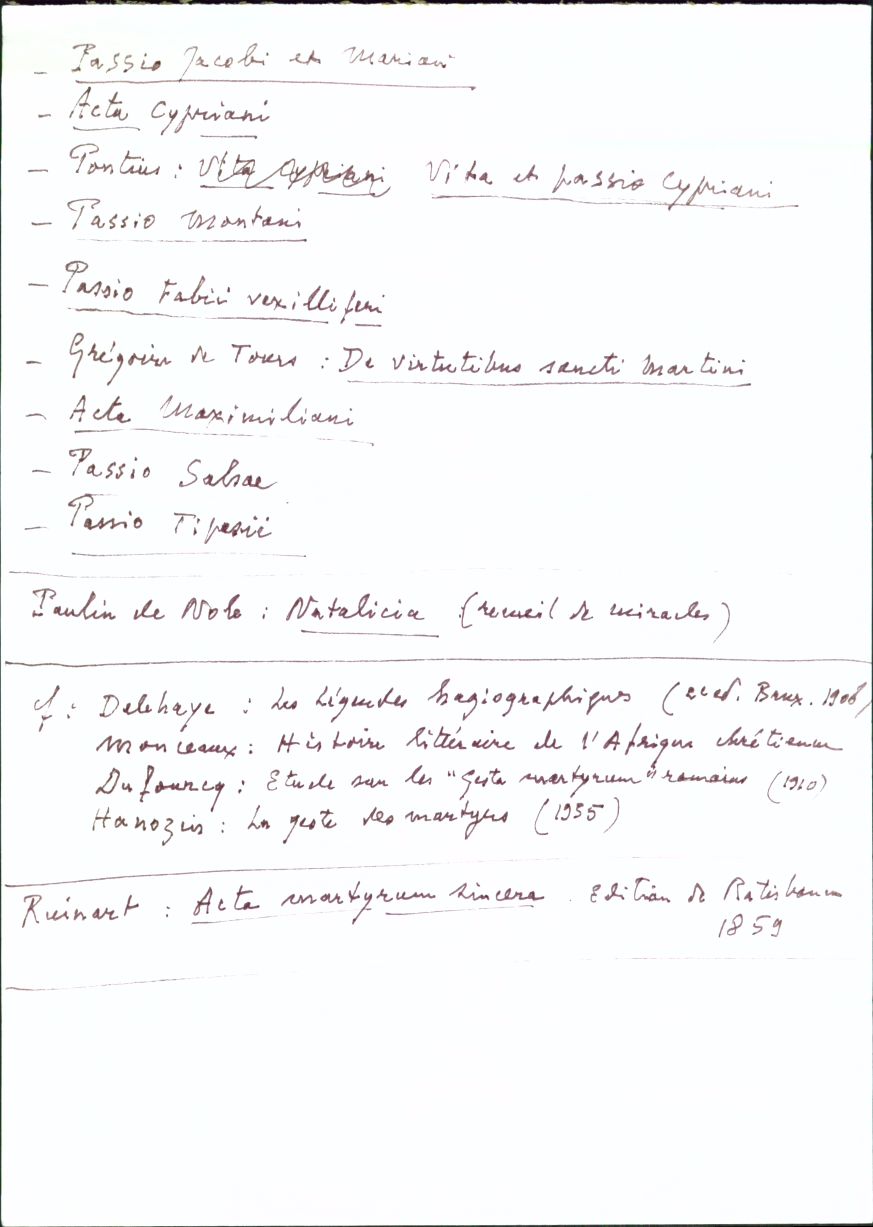 - Passio Jacobi et Mariani
- Acta Cypriani
- Pontius : Vita Cypriani Vita et passio Cypriani
- Passio Montani
- Passio Fabii vexilliferi
- Grégoire de Tours : De virtutibus sancti Martini
- Acta Maximiliani
- Passio Salsae
- Passio Tipasii
Paulin de Nole : Natalicia (recueil de miracles)
cf : Delehaye : Les Légendes hagiographiques (2e ed. Brux. 1906)
Monceaux : Histoire littéraire de l'Afrique chrétienne
Dufourcq : Etude sur les "Gesta martyrum" romains (1910)
Hanozin : La geste des martyrs (1935)
Ruinart : Acta martyrum sincera . Edition de Ratisbonne
1859